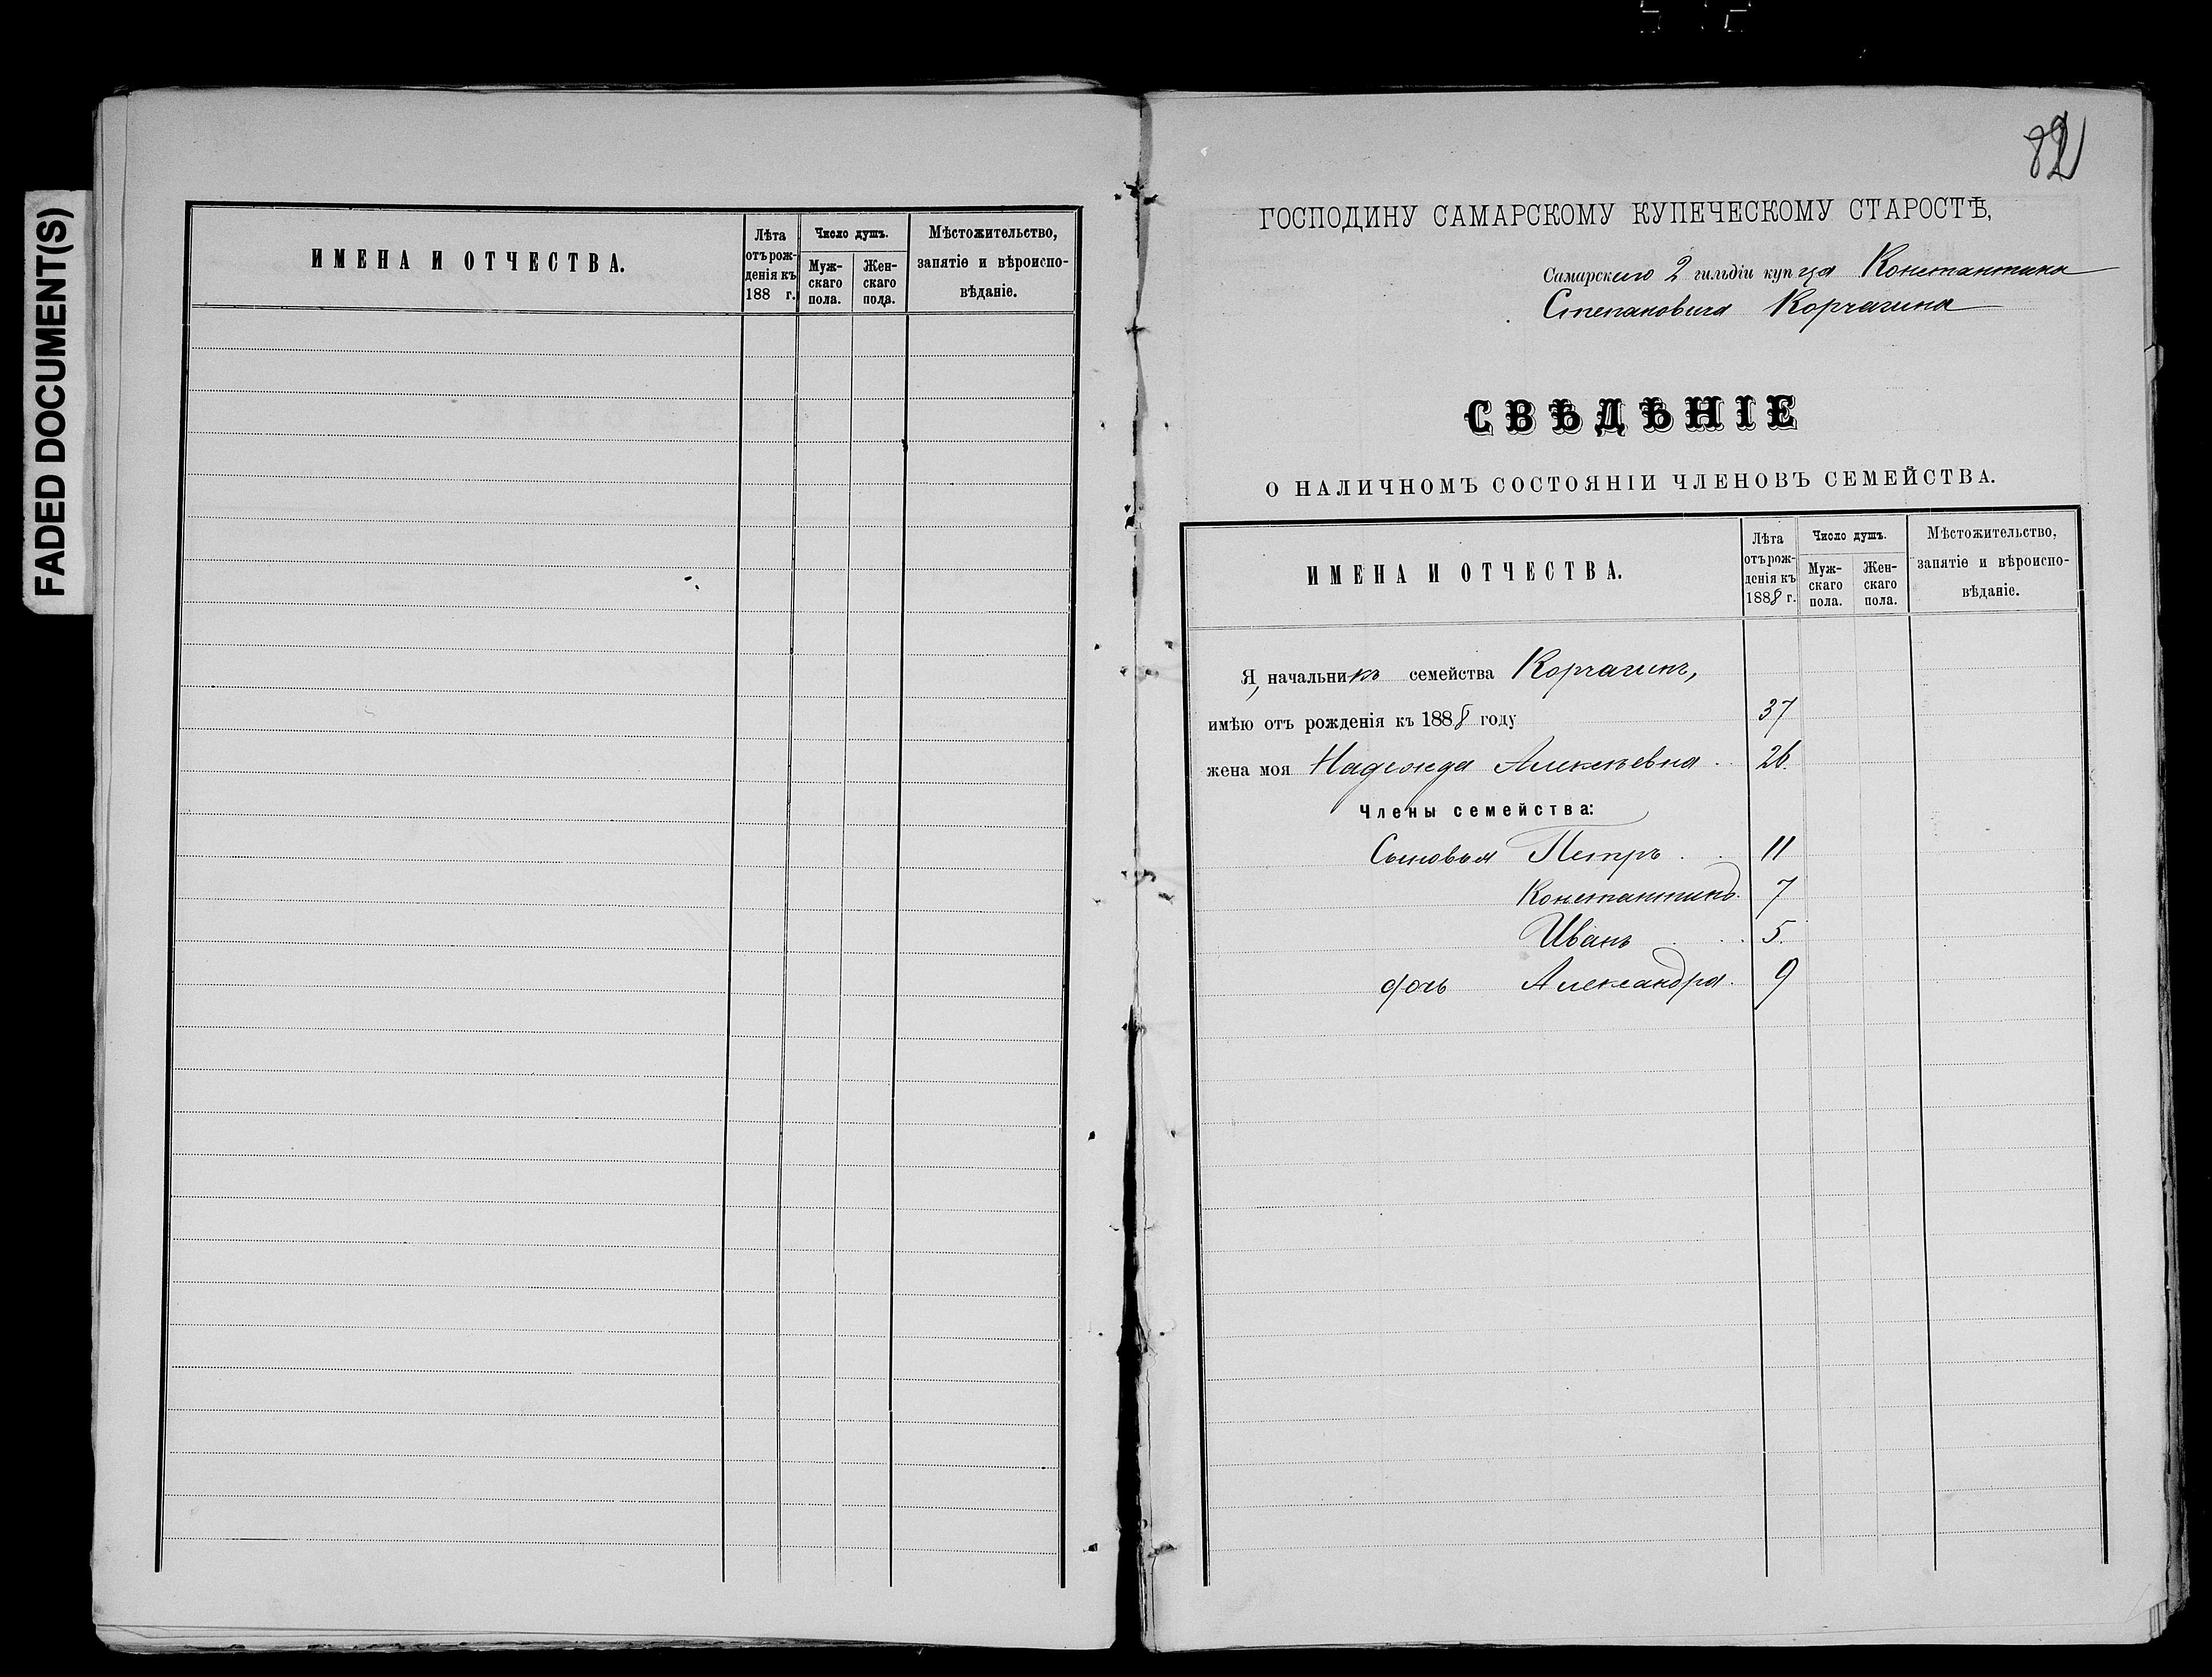 FADED DOCUMENT(S)
ИМЕНА И ОТЧЕСТВА.
Лѣта отъ рожденія къ 188 г.
Число душъ.
Мужскаго пола.
Женскаго пола.
Мѣстожительство, занятіе и вѣроисповѣданіе.
82
ГОСПОДИНУ САМАРСКОМУ КУПЕЧЕСКОМУ СТАРОСТѢ,
Самарскаго 2 гильдіи купца Константина
Степановича Корчагина
СВѢДѢНІЕ
О НАЛИЧНОМЪ СОСТОЯНІИ ЧЛЕНОВЪ СЕМЕЙСТВА.
ИМЕНА И ОТЧЕСТВА.
Лѣта отъ рожденія къ 1888 г.
Число душъ.
Мужскаго пола.
Женскаго пола.
Мѣстожительство, занятіе и вѣроисповѣданіе.
Я, начальникъ семейства Корчагинъ,
имѣю отъ рожденія къ 1888 году 37
жена моя Надежда Алексѣевна 26.
Члены семейства:
Сыновья Петръ 11
Константинъ 7
Иванъ 5.
дочь Александра 9